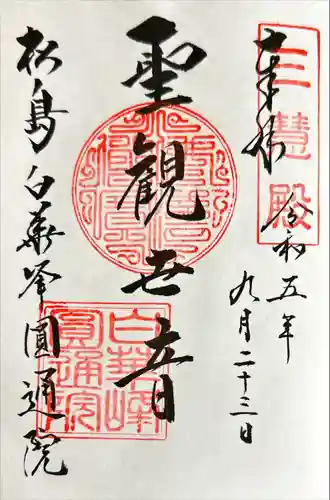 奉拝
三慧殿
令和五年
九月二十三日
聖観世音
松島白華峰圓通院
白華峰
圓通院